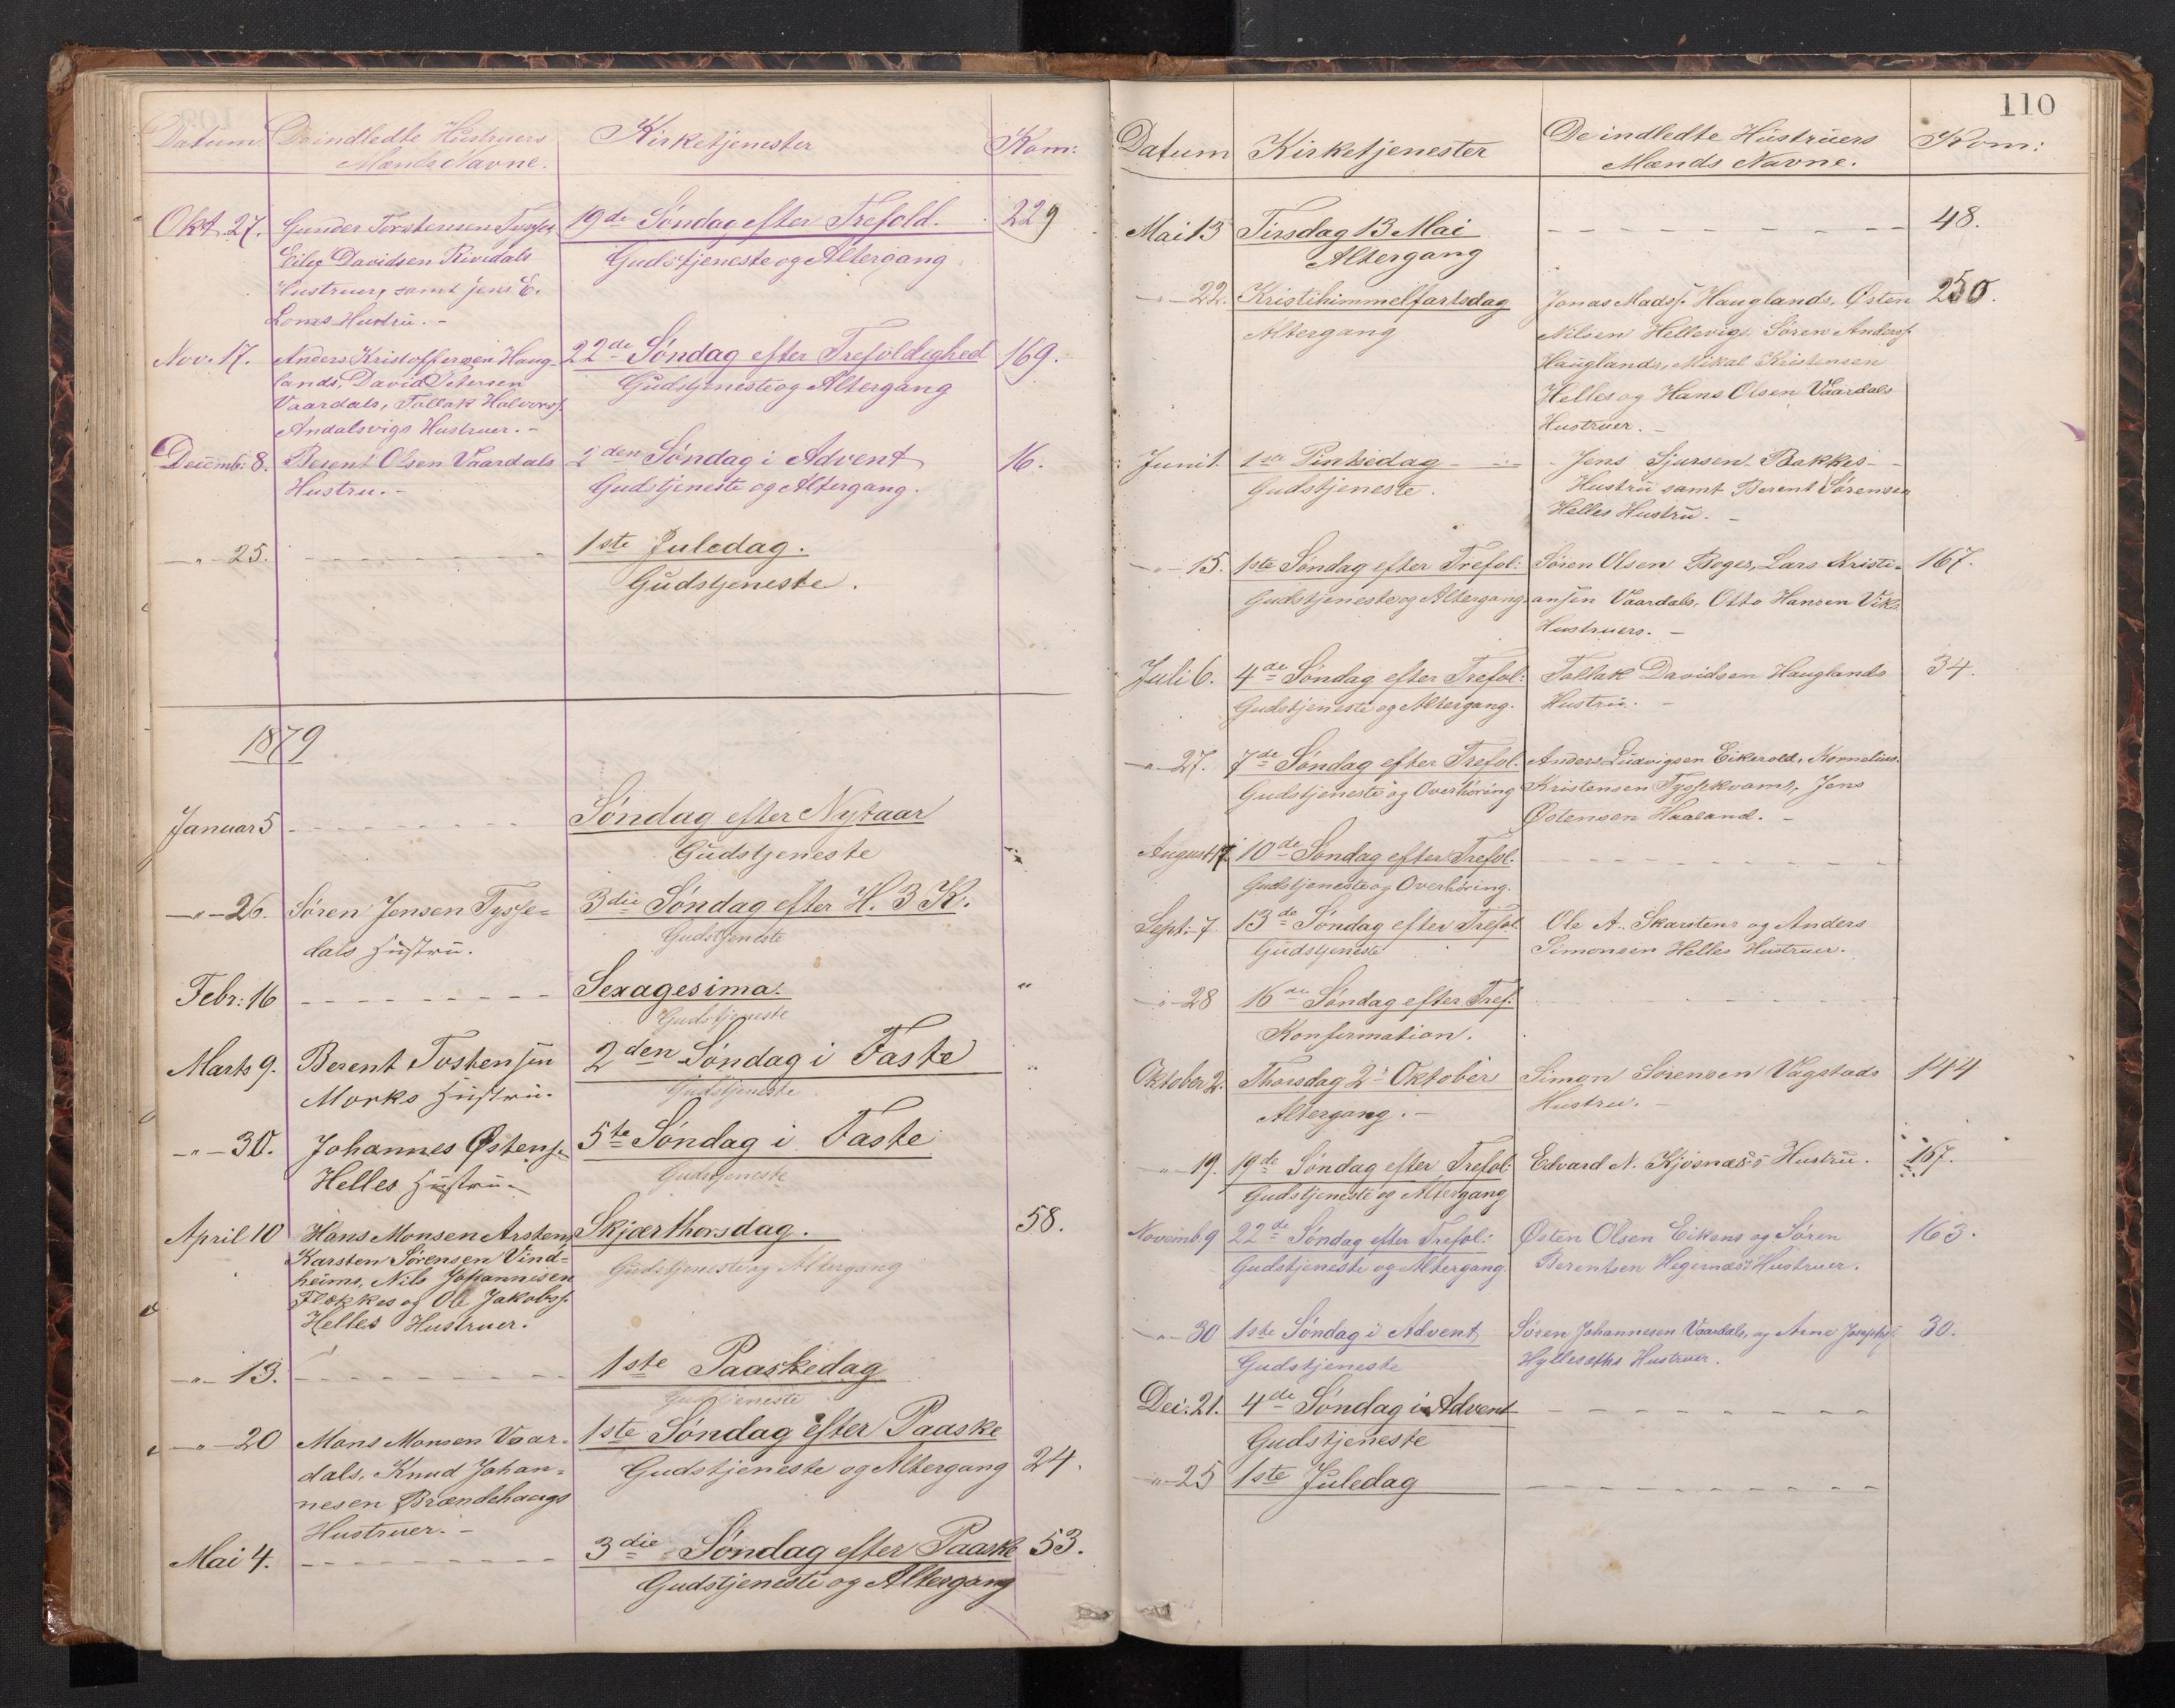 Datum. De indledte Hustruers Kirketjenester Kom:
Mænds Navne.
Okt. 27. Gunder Torstensen Tysse, 19de Søndag efter Trefold. 229
Eilif Davidsen Rivedals Gudstjeneste og Altergang
Hustruer, samt Jens E.
Loms Hustru. -
Nov. 17. Anders Kristoffersen Haug- 22de Søndag efter Trefoldighed 169.
lands, David Petersen Gudstjeneste og Altergang
Vaardals, Tollak Halvors.
Andalsvigs Hustruer. -
Decemb: 8. Berent Olsen Vaardals 2den Søndag i Advent 16.
Hustru. - Gudstjeneste og Altergang.
— " — 25. - - - - - - - - 1ste Juledag.
Gudstjeneste.
1879
Januar 5 - - - - - - - - Søndag efter Nytaar
Gudstjeneste
— " — 26. Søren Jensen Tysse= 3die Søndag efter H. 3 K.
dals Hustru. Gudstjeneste
Febr: 16 - - - - - - - - Sexagesima. "
Gudstjeneste
Marts 9. Berent Tostensen 2den Søndag i Faste "
Morks Hustru. Gudstjeneste
- " — 30. Johannes Østens. 5te Søndag i Faste
Helles Hustru. Gudstjeneste
April 10 Hans Monsen Arstens Skjærthorsdag. 58.
Karsten Sørensen Vind= Gudstjeneste og Altergang
heims, Nils Johannesen
Flekkes og Ole Jakobs.
Helles Hustruer.
— " — 13. - - - - - - - - 1ste Paaskedag
Gudstjeneste
— " — 20 Mons Monsen Vaar- 1ste Søndag efter Paaske
dals, Knud Johan= Gudstjeneste og Altergang 24.
nesen Brændehaugs
Hustruer. -
Mai 4. - - - - - - - - 3die Søndag efter Paaske 53.
Gudstjeneste og Altergang
110
Datum Kirketjenester De indledte Hustruers Kom:
Mænds Navne.
Mai 13 Tirsdag 13 Mai - - - - - - - - 48.
Altergang
— " — 22. Kristihimmelfartsdag Jonas Mads. Hauglands, Østen 250.
Altergang Nilsen Hellevig, Søren Anders.
Hauglands, Mikal Kristensen
Helles og Hans Olsen Vaardals
Hustruer. -
Juni 1. 1ste Pintsedag - Jens Sjursen Bakkes
Gudstjeneste. Hustru samt Berent Sørensen
Helles Hustru. -
— " — 15. 1ste Søndag efter Trefol: Søren Olsen Boges, Lars Kristi- 167.
Gudstjeneste og Altergang. ansen Vaardals, Otto Hansen Viks
Hustruers. -
Juli 6. 4de Søndag efter Trefol: Tollak Davidsen Hauglands 34.
Gudstjeneste og Altergang. Hustru. -
— " — 27. 7de Søndag efter Trefol. Anders Ludvigsen Eikerold, Kornelius
Gudstjeneste og Overhöring Kristensen Tyssekvams, Jens
Østensen Haaland. -
August 17. 10de Søndag efter Trefol. - - - - - - - -
Gudstjeneste og Overhöring.
Sept: 7 13de Søndag efter Trefol. Ole A. Skarstens og Anders
Gudstjeneste Simonsen Helles Hustruer.
— " — 28 16de Søndag efter Tref: - - - - - - - -
Konfirmation.
Oktober 2. Thorsdag 2 Oktober Simon Sörensen Vagstads 144
Altergang. - Hustru. -
— " — 19. 19de Søndag efter Trefol: Edvard N. Kjøsnæs's Hustru. 167.
Gudstjeneste og Altergang
Novemb. 9 22de Søndag efter Trefol: Østen Olsen Eikens og Søren 163.
Gudstjeneste og Altergang Berentsen Hegernæs's Hustruer.
— " — 30 1ste Søndag i Advent Søren Johannesen Vaardals, og Arne Josephs. 30.
Gudstjeneste Hustruer.
Dec: 21. 4de Søndag i Advent - - - - - - - -
Gudstjeneste
— " — 25 1ste Juledag - - - - - - - -